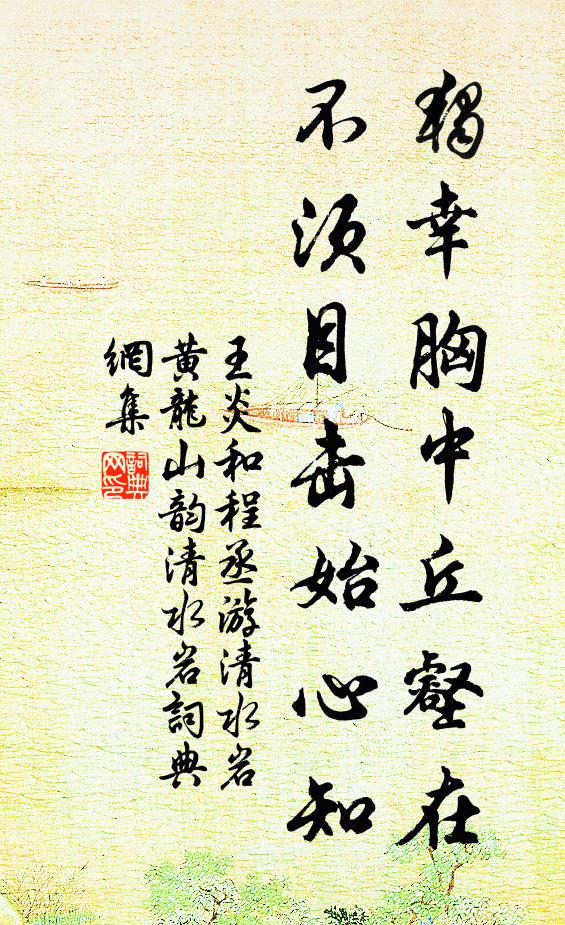 独幸胸中丘壑在
不须目击始心知
王炎和程丞游清水岩
黄龙山韵清水岩詞典
網集
詞典網印